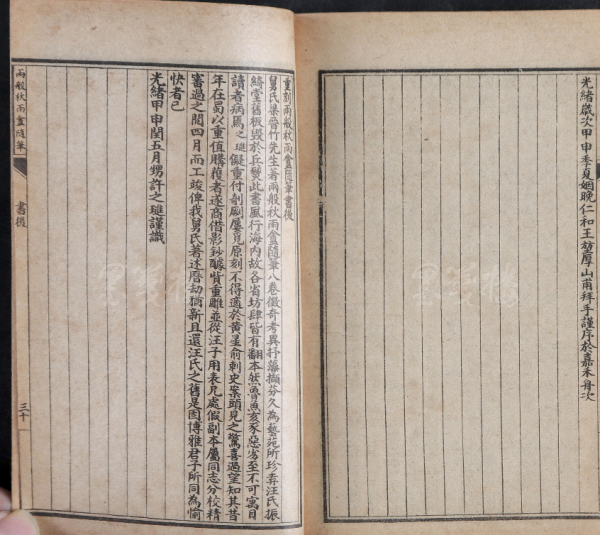 光緒歲次甲申季夏姻晚仁和王堃厚山甫拜手謹序於嘉禾舟次
重刻兩般秋雨盦隨筆書後
舅氏梁晉竹先生著兩般秋雨盦隨筆八卷徵奇考異抒藻摛芬久為藝苑所珍弆汪氏振
綺堂舊板燬於兵燹此書風行海內故各省坊肆皆有翻本然魯魚亥豕惡劣至不可寓目
讀者病焉之璡儗重付剞劂屢覓原刻不得適於黃星俞刺史案頭見之驚喜過望知其昔
年在蜀以重值購獲者遂商借影鈔醵貲重雕並從汪子用表兄處假副本屬同志分校精
審過之閱四月而工竣俾我舅氏著述曆劫猶新且還汪氏之舊是固博雅君子所同為愉
快者已
光緒甲申閏五月甥許之璡謹識
兩般秋雨盦隨筆
書後
三十